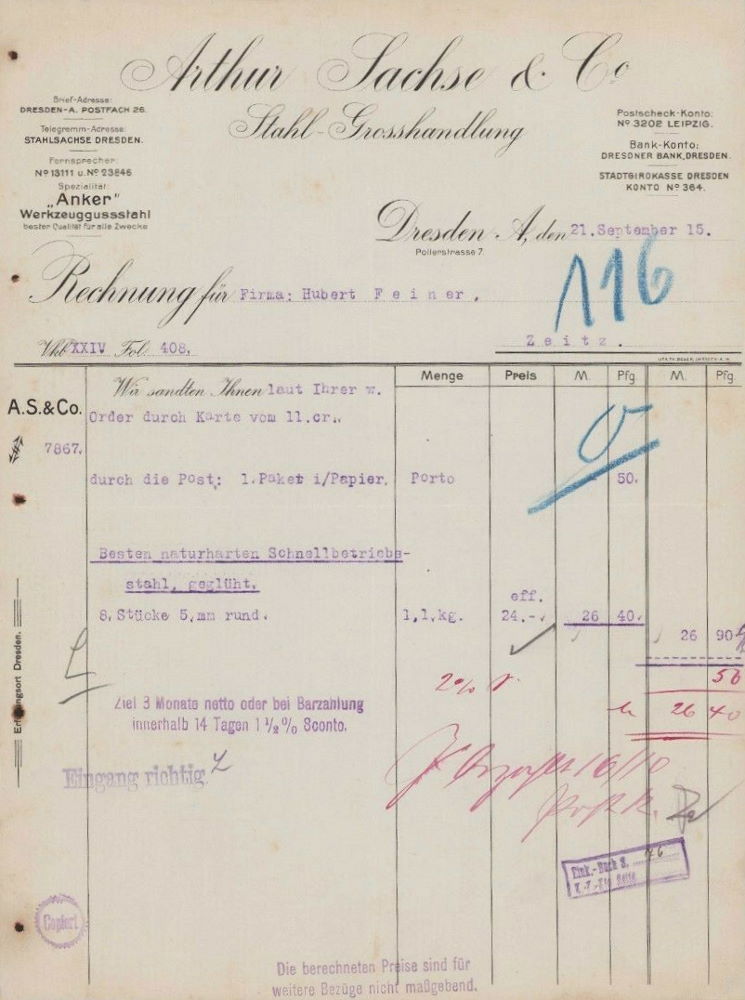 Arthur Sachse & Co
Stahl-Grosshandlung
Brief-Adresse:
DRESDEN-A. POSTFACH 26.
Telegramm-Adresse:
STAHLSACHSE DRESDEN.
Fernsprecher:
No 13111 u. No 23846
Spezialität:
„Anker"
Werkzeuggussstahl
bester Qualität für alle Zwecke
Postscheck-Konto:
No 3202 LEIPZIG.
Bank-Konto:
DRESDNER BANK, DRESDEN.
STADTGIROKASSE DRESDEN
KONTO No 364.
Dresden-A, den 21.September 15.
Polierstrasse 7
116
Rechnung für Firma: Hubert Feiner,
Zeitz.
Vkb XXIV Fol: 408.
Menge Preis M. Pfg M. Pfg.
A.S.&Co.
7867.
Wir sandten Ihnen laut Ihrer w.
Order durch Karte vom 11.cr.
durch die Post: 1.Paket i/Papier. Porto 50.
Besten naturharten Schnellbetriebs-
stahl, geglüht.
eff.
8.Stücke 5,mm rund. 1,1,kg. 24.-. 26 40.
26 90
2% 50
26 40
Erfüllungsort Dresden.
Ziel 3 Monate netto oder bei Barzahlung
innerhalb 14 Tagen 1 1/2 % Sconto.
Eingang richtig
16/10
Eink.-Buch S. 76
Copiert
Die berechneten Preise sind für
weitere Bezüge nicht maßgebend.